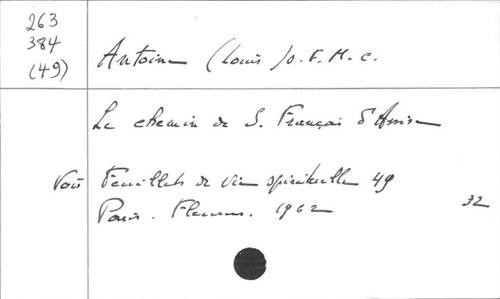 263
384
(49)
Antoine (Louis) O.F.M.C.
Le chemin de S. François d'Assise
Voir Feuillets de vie spirituelle 49
Paris. Fleurus. 1962
32